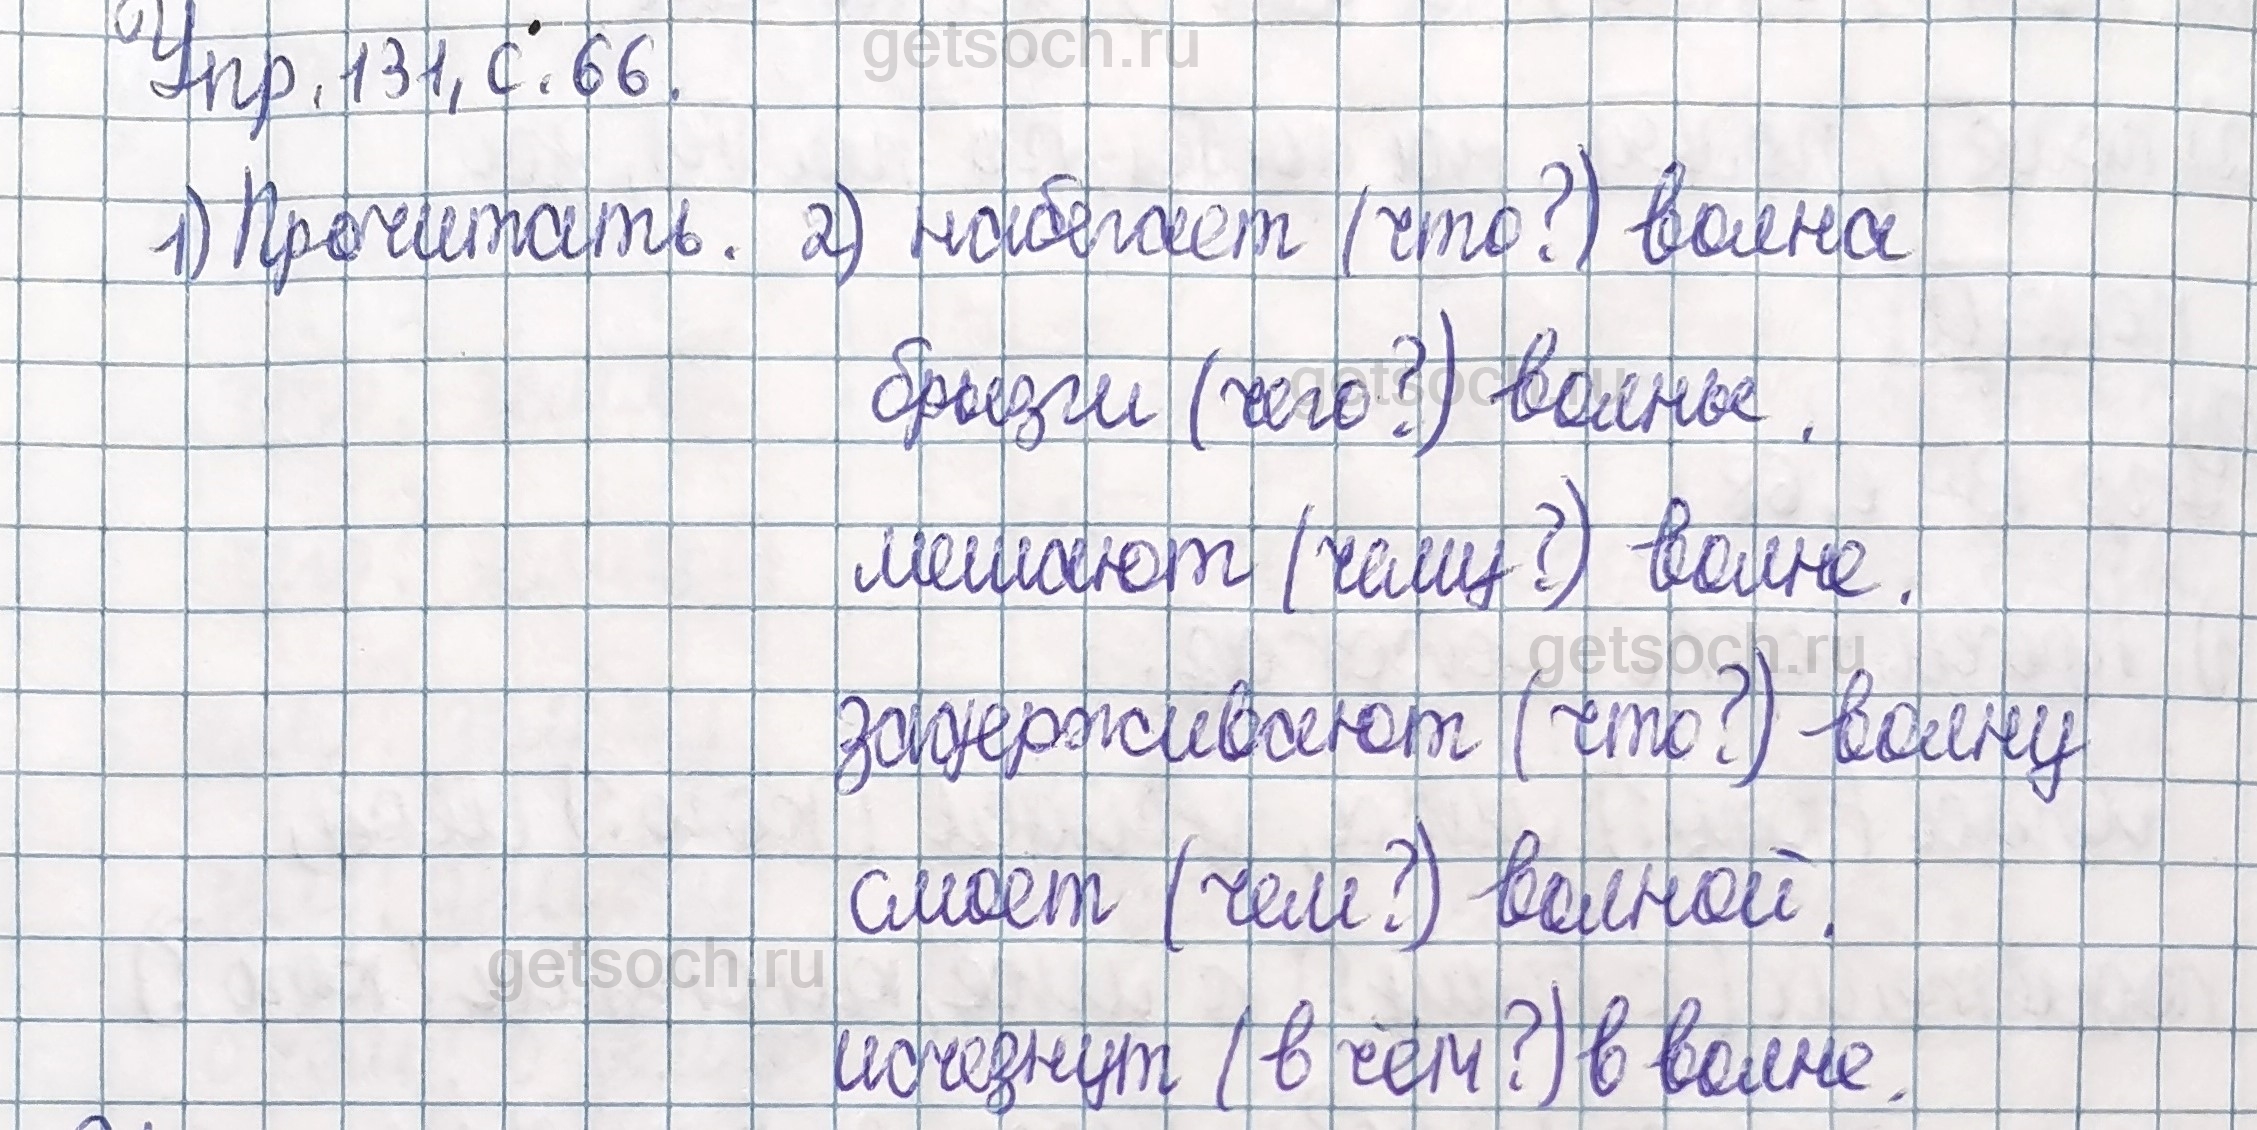 getsoch.ru
Упр. 131, с. 66.
1) Прочитать. 2) набегает (что?) волна
брызги (чего?) волны.
getsoch.ru
мешают (чему?) волне.
getsoch.ru
задерживают (что?) волну
смоет (чем?) волной.
getsoch.ru
исчезнут (в чём?) в волне.